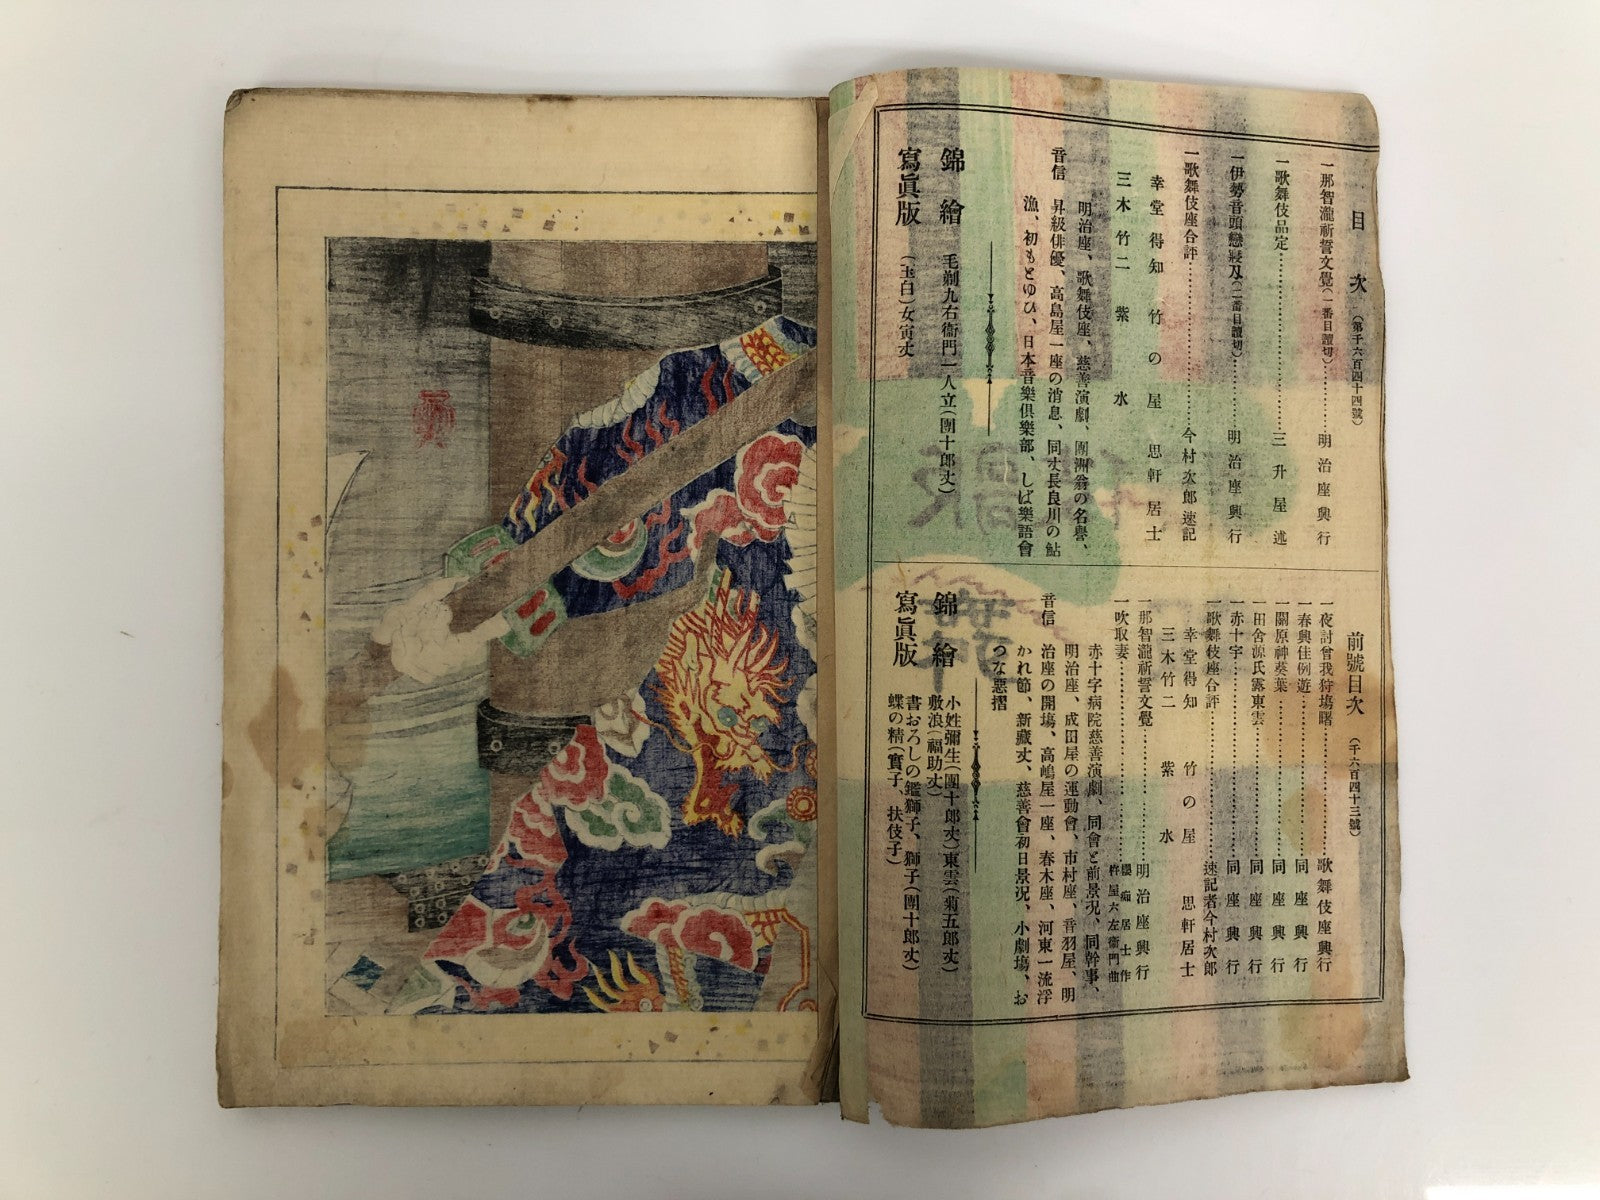 目次（第千六百四十四號）
一那智瀧祈誓文覺（一番目讀切）……明治座興行
一歌舞伎品定……三升屋述
一伊勢音頭戀寢刄（二番目讀切）……明治座興行
一歌舞伎座合評……今村次郎速記
幸堂得知 竹の屋 思軒居士
三木竹二 紫水
音信 明治座、歌舞伎座、慈善演劇、團洲翁の名譽、
昇級俳優、高島屋一座の消息、同丈長良川の鮎
漁、初もとゆひ、日本音樂倶樂部、しば樂語會
錦繪 毛剃九右衞門一人立（團十郎丈）
寫眞版 （玉白）女寅丈
前號目次（千六百四十三號）
一夜討曾我狩塲曙……歌舞伎座興行
一春興佳例遊……同座興行
一關原神葵葉……同座興行
一田舎源氏露東雲……同座興行
一赤十字……同座興行
一歌舞伎座合評……速記者今村次郎
幸堂得知 竹の屋 思軒居士
三木竹二 紫水
一那智瀧祈誓文覺……明治座興行
一吹取妻……居士作
杵屋六左衞門曲
赤十字病院慈善演劇、同會と前景况、同幹事、
音信 明治座、成田屋の運動會、市村座、音羽屋、明
治座の開塲、高嶋屋一座、春木座、河東一流浮
かれ節、新藏丈、慈善會初日景况、小劇塲、お
つな惡摺
錦繪 小姓彌生（團十郎丈）東雲（菊五郎丈）
敷浪（福助丈）
寫眞版 書おろしの鑑獅子、獅子（團十郎丈）
蝶の精（實子、扶伎子）